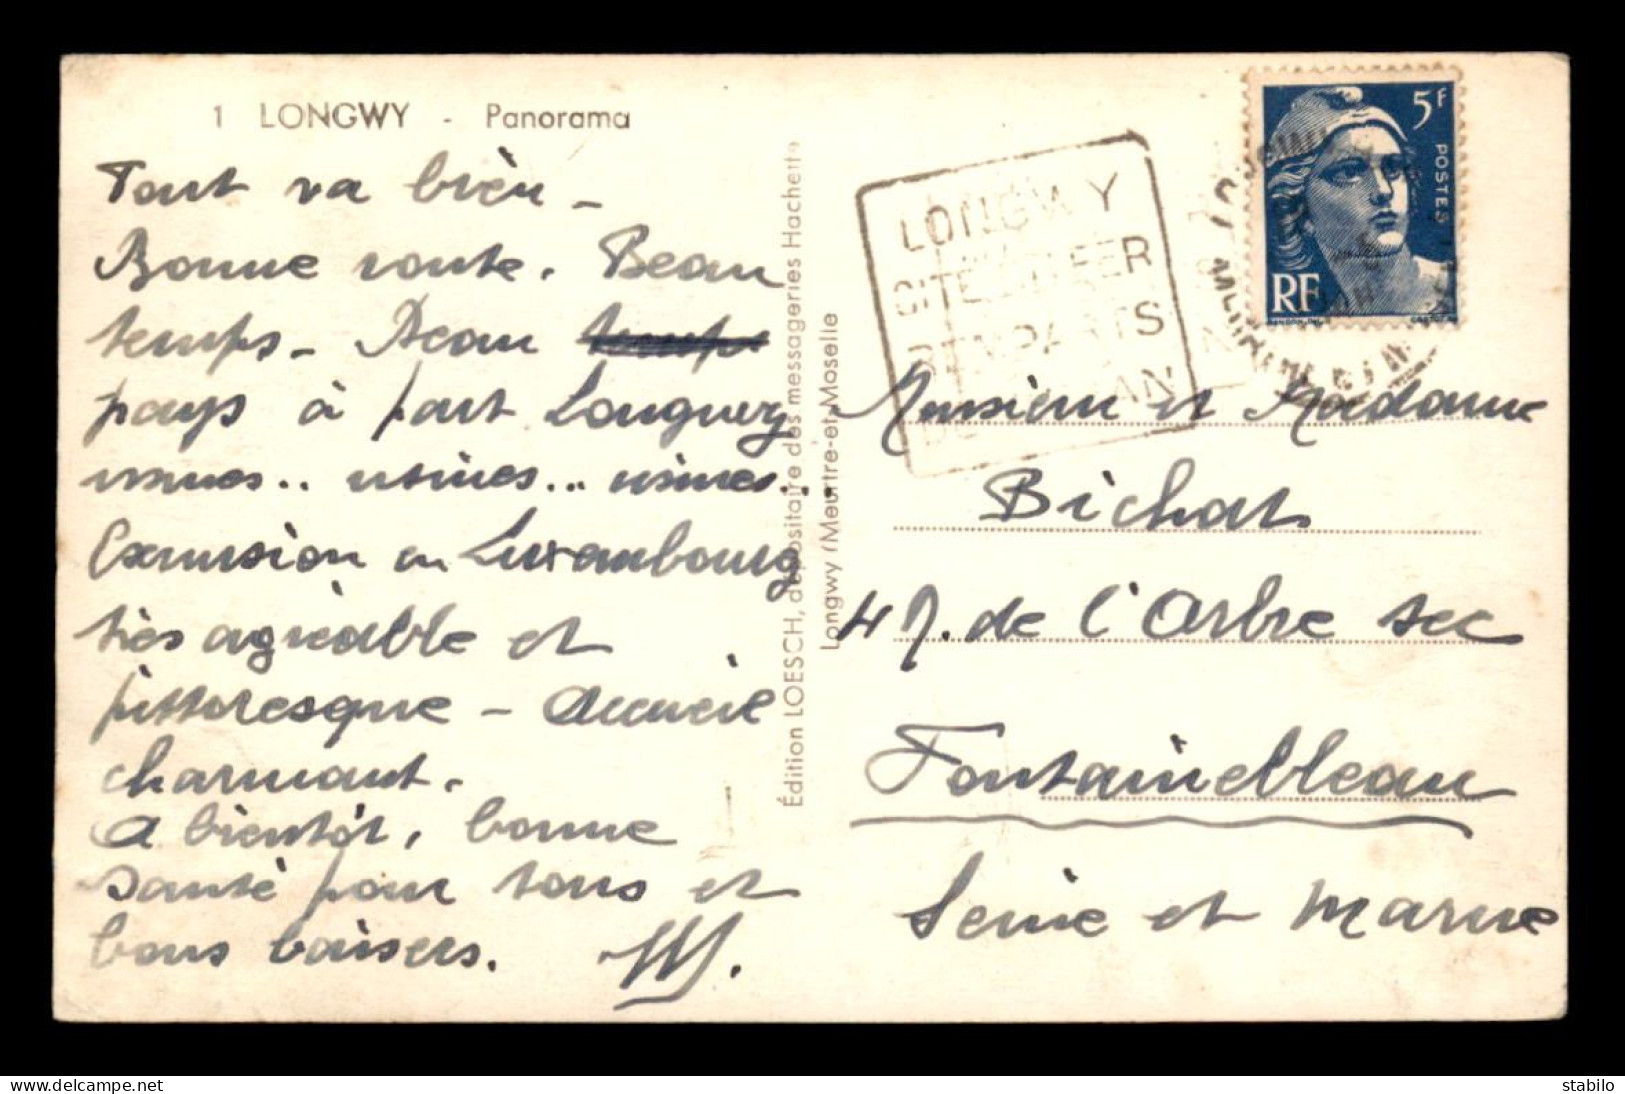 1 LONGWY - Panorama
Tout va bien -
Bonne route. Beau
temps - Beau temps
pays à part Longwy
usines.. usines... usines...
Excursion en Luxembourg
très agréable et
pittoresque - Accueil
charmant.
A bientôt, bonne
santé pour tous et
bons baisers.
Édition LOESCH, dépositaire des messageries Hachette
Longwy (Meurtre-et-Moselle
LONGWY
CITE DU FER
REMPARTS
DE VAUBAN
5F
POSTES
RF
Monsieur et Madame
Bichat
4 r. de l'Arbre sec
Fontainebleau
Seine et Marne
delcampe.net
stabilo